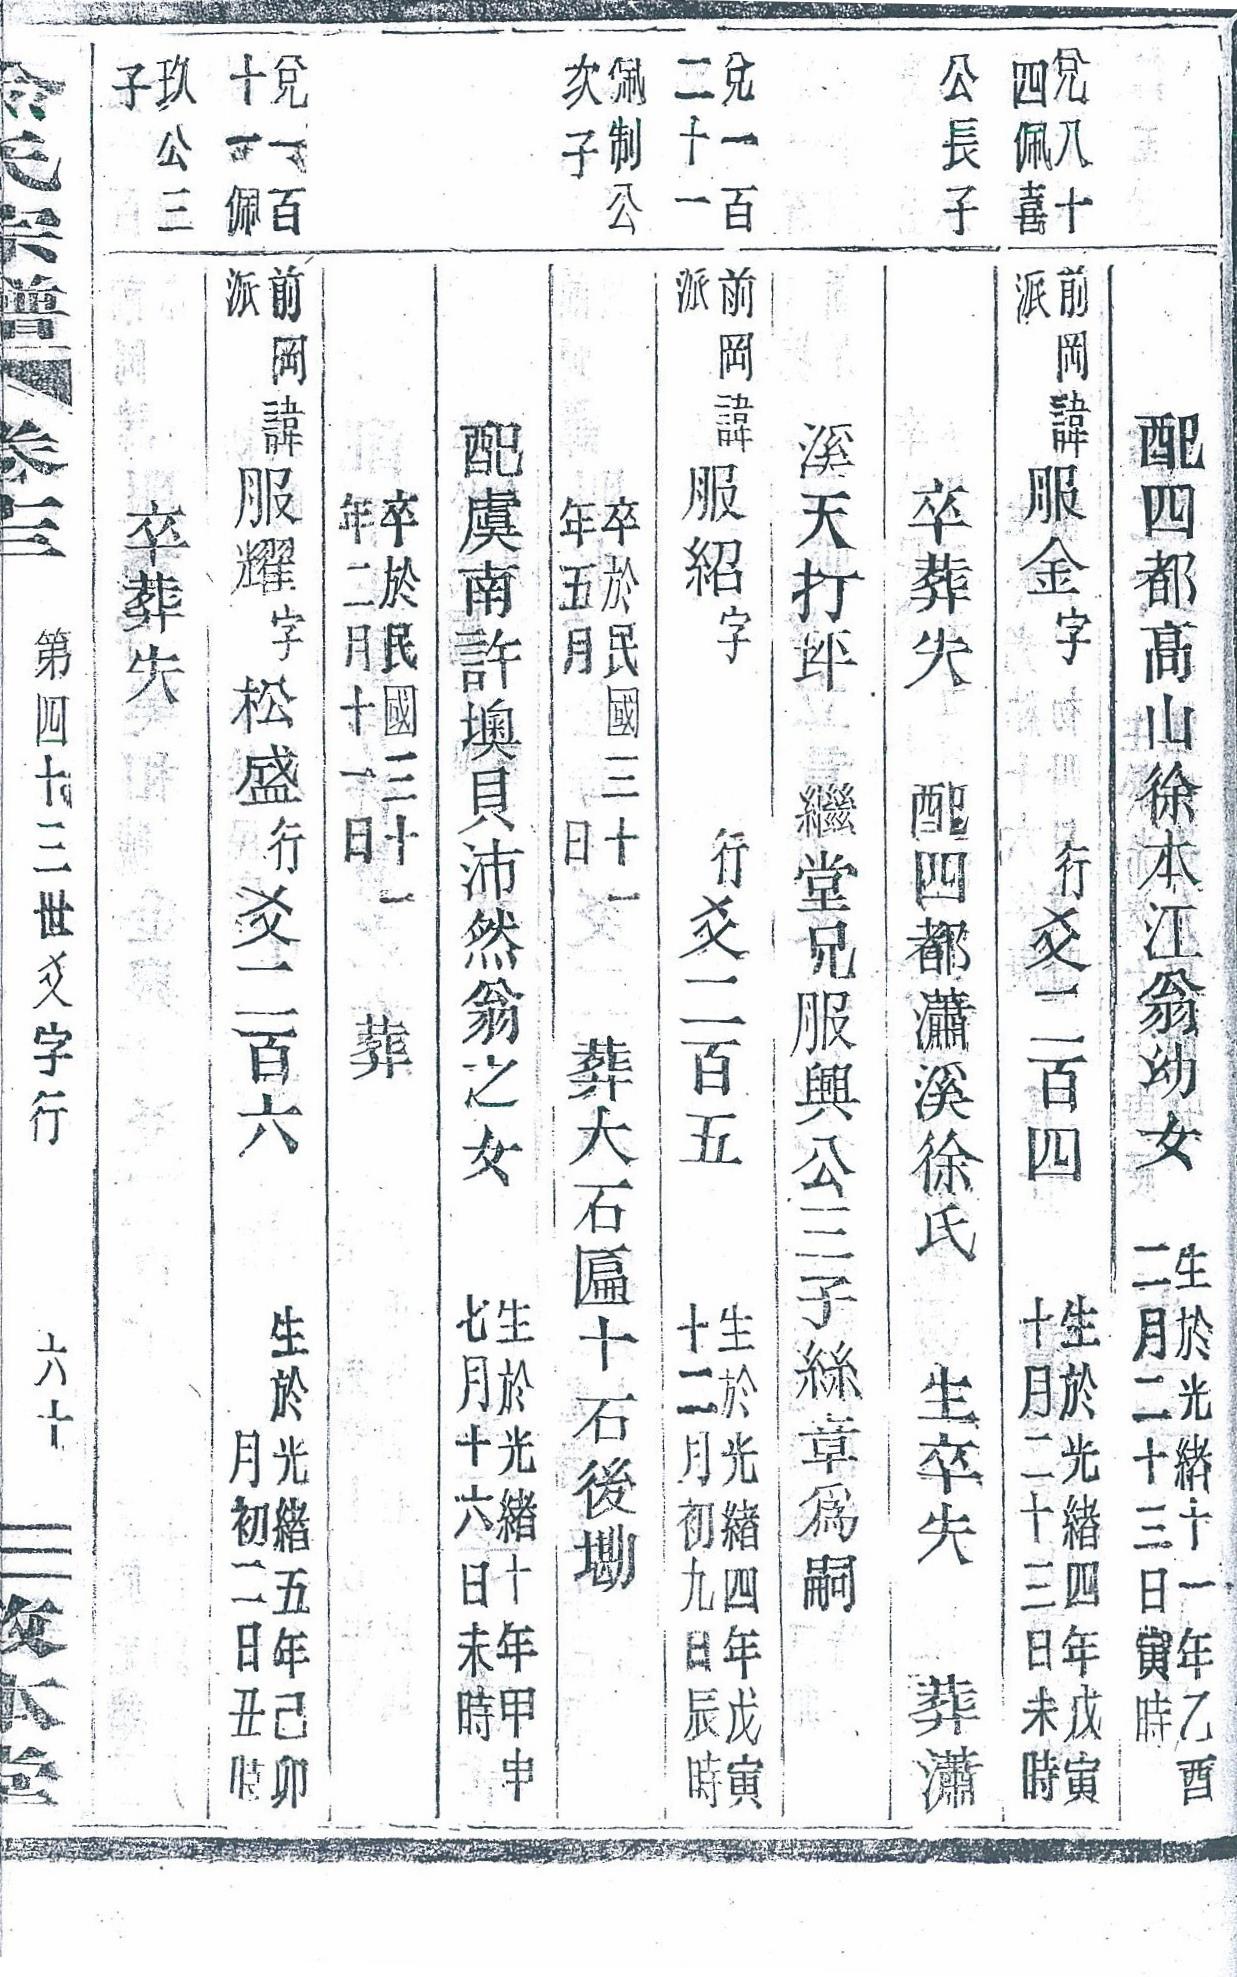 配四都高山徐本江翁幼女 生於光緒十一年乙酉二月二十三日寅時
兌八十四佩喜公長子
前岡派諱服金字 行爻二百四 生於光緒四年戊寅十月二十三日未時
卒葬失 配四都瀟溪徐氏 生卒失 葬瀟
溪天打坪 繼堂兄服興公三子絲章爲嗣
兌一百二十一佩制公次子
前岡派諱服紹字 行爻二百五 生於光緒四年戊寅十二月初九日辰時
卒於民國三十一年五月 日 葬大石匾十石後墈
配虞南許墺貝沛然翁之女 生於光緒十年甲申七月十六日未時
卒於民國三十一年二月十一日 葬
兌一百十一佩玖公三子
前岡派諱服耀字松盛行爻二百六 生於光緒五年己卯 月初二日丑時
卒葬失
氏宗譜 卷三 第四十三世爻字行 六十 敦本堂